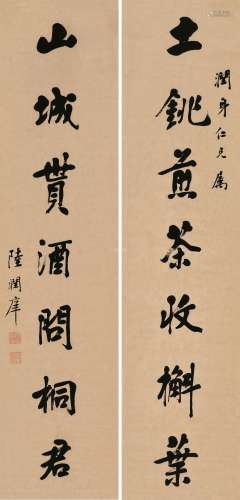 潤身仁兄屬
土銚煎茶收槲葉
山城貰酒問桐君
陸潤庠